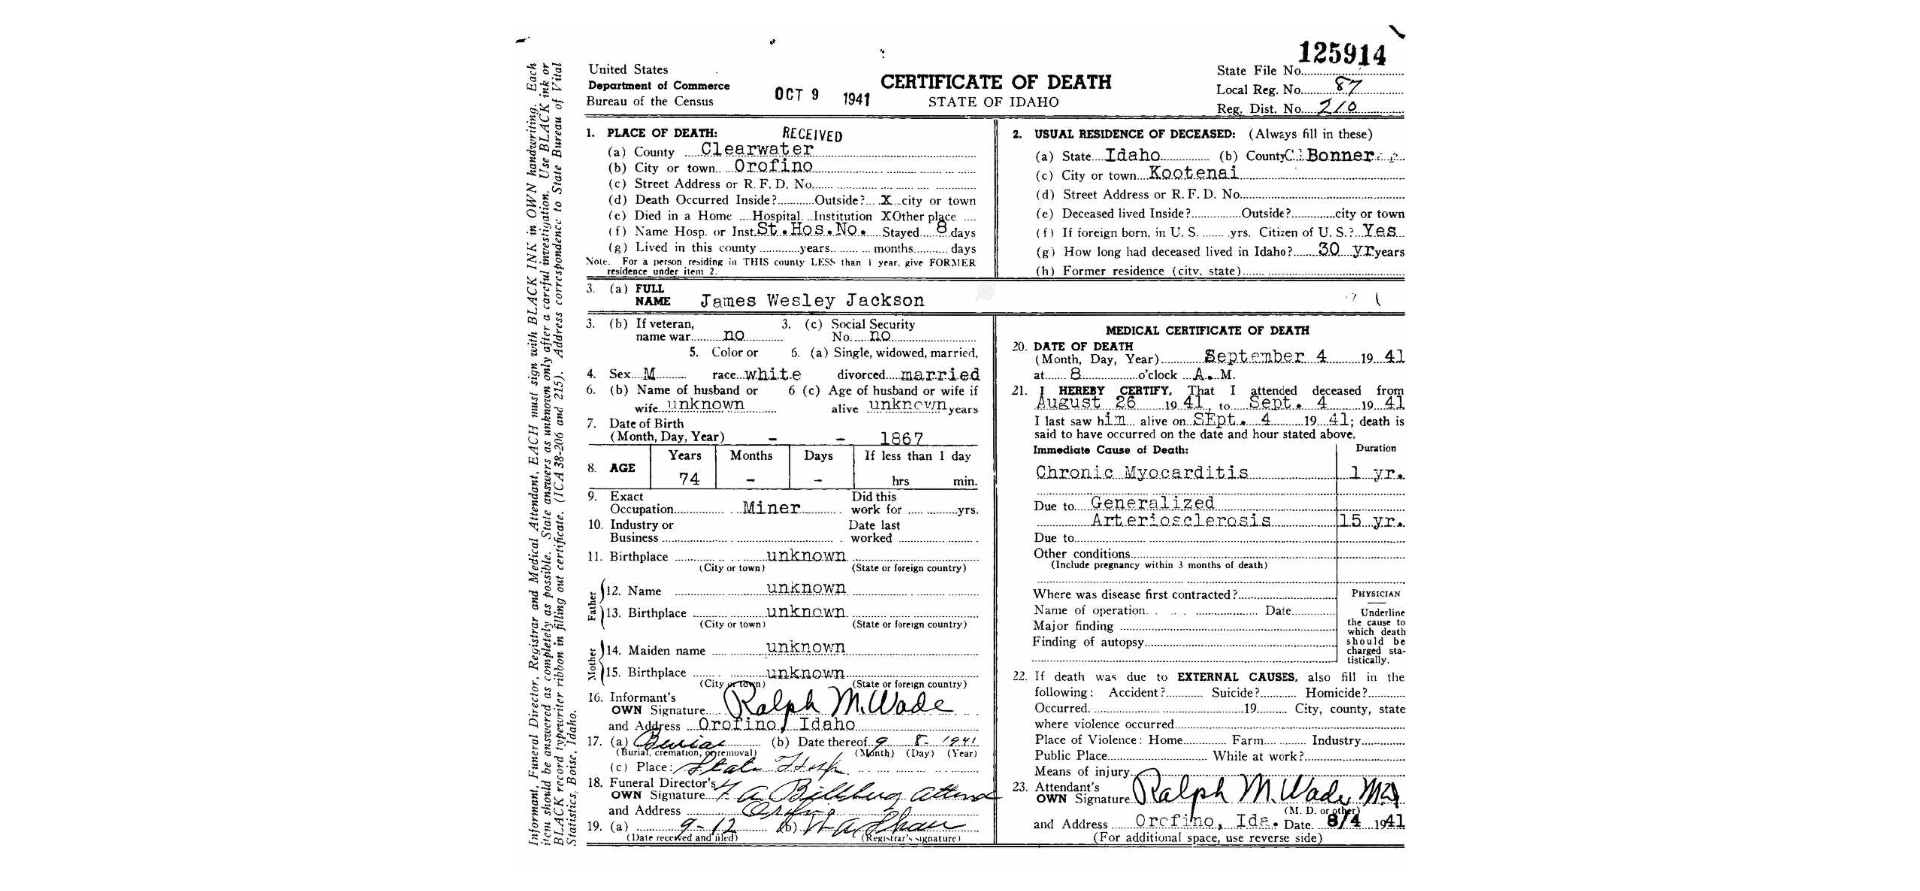 125914
United States
Department of Commerce
Bureau of the Census
OCT 9 1941
CERTIFICATE OF DEATH
STATE OF IDAHO
State File No.
Local Reg. No. 87
Reg. Dist. No. 210
Informant, Funeral Director, Registrar and Medical Attendant, EACH must sign with BLACK INK in OWN handwriting. Each
item should be answered as completely as possible. State answers as unknown only after a careful investigation. Use BLACK ink or
BLACK record typewriter ribbon in filling out certificate. (ICA 38-206 and 215). Address correspondence to State Bureau of Vital
Statistics, Boise, Idaho.
1. PLACE OF DEATH: RECEIVED
(a) County Clearwater
(b) City or town Orofino
(c) Street Address or R. F. D. No.
(d) Death Occurred Inside? Outside? X city or town
(e) Died in a Home Hospital Institution X Other place
(f) Name Hosp. or Inst. St.Hos.No. Stayed 8 days
(g) Lived in this county years months days
Note. For a person residing in THIS county LESS than 1 year, give FORMER
residence under item 2.
2. USUAL RESIDENCE OF DECEASED: (Always fill in these)
(a) State Idaho (b) County Bonner
(c) City or town Kootenai
(d) Street Address or R. F. D. No.
(e) Deceased lived Inside? Outside? city or town
(f) If foreign born, in U. S. yrs. Citizen of U. S.? Yes
(g) How long had deceased lived in Idaho? 30 yr years
(h) Former residence (city, state)
3. (a) FULL
NAME James Wesley Jackson
3. (b) If veteran, 3. (c) Social Security
name war no No. no
5. Color or 6. (a) Single, widowed, married,
4. Sex M race white divorced married
6. (b) Name of husband or 6 (c) Age of husband or wife if
wife unknown alive unknown years
7. Date of Birth
(Month, Day, Year) - - 1867
8. AGE Years Months Days If less than 1 day
74 - - hrs min.
9. Exact Did this
Occupation Miner work for yrs.
10. Industry or Date last
Business worked
11. Birthplace unknown
(City or town) (State or foreign country)
Father
12. Name unknown
13. Birthplace unknown
(City or town) (State or foreign country)
Mother
14. Maiden name unknown
15. Birthplace unknown
(City or town) (State or foreign country)
16. Informant's
OWN Signature Ralph M. Wade
and Address Orofino, Idaho
17. (a) Burial (b) Date thereof 9 8- 1941
(Burial, cremation, or removal) (Month) (Day) (Year)
(c) Place: State Hosp
18. Funeral Director's
OWN Signature
and Address Orofino
19. (a) 9-12 (b)
(Date received and filed) (Registrar's signature)
MEDICAL CERTIFICATE OF DEATH
20. DATE OF DEATH
(Month, Day, Year) September 4 19 41
at 8 o'clock A. M.
21. I HEREBY CERTIFY, That I attended deceased from
August 26 19 41, to Sept. 4 19 41
I last saw him alive on SEpt. 4 19 41; death is
said to have occurred on the date and hour stated above.
Immediate Cause of Death: Duration
Chronic Myocarditis 1 yr.
Due to Generalized
Arteriosclerosis 15 yr.
Due to
Other conditions
(Include pregnancy within 3 months of death)
Where was disease first contracted?
Name of operation Date
Major finding
Finding of autopsy
PHYSICIAN
Underline
the cause to
which death
should be
charged sta-
tistically.
22. If death was due to EXTERNAL CAUSES, also fill in the
following: Accident? Suicide? Homicide?
Occurred 19 City, county, state
where violence occurred
Place of Violence: Home Farm Industry
Public Place While at work?
Means of injury
23. Attendant's
OWN Signature Ralph M. Wade, MD
(M. D. or other)
and Address Orofino, Ida. Date 8/4 1941
(For additional space, use reverse side)